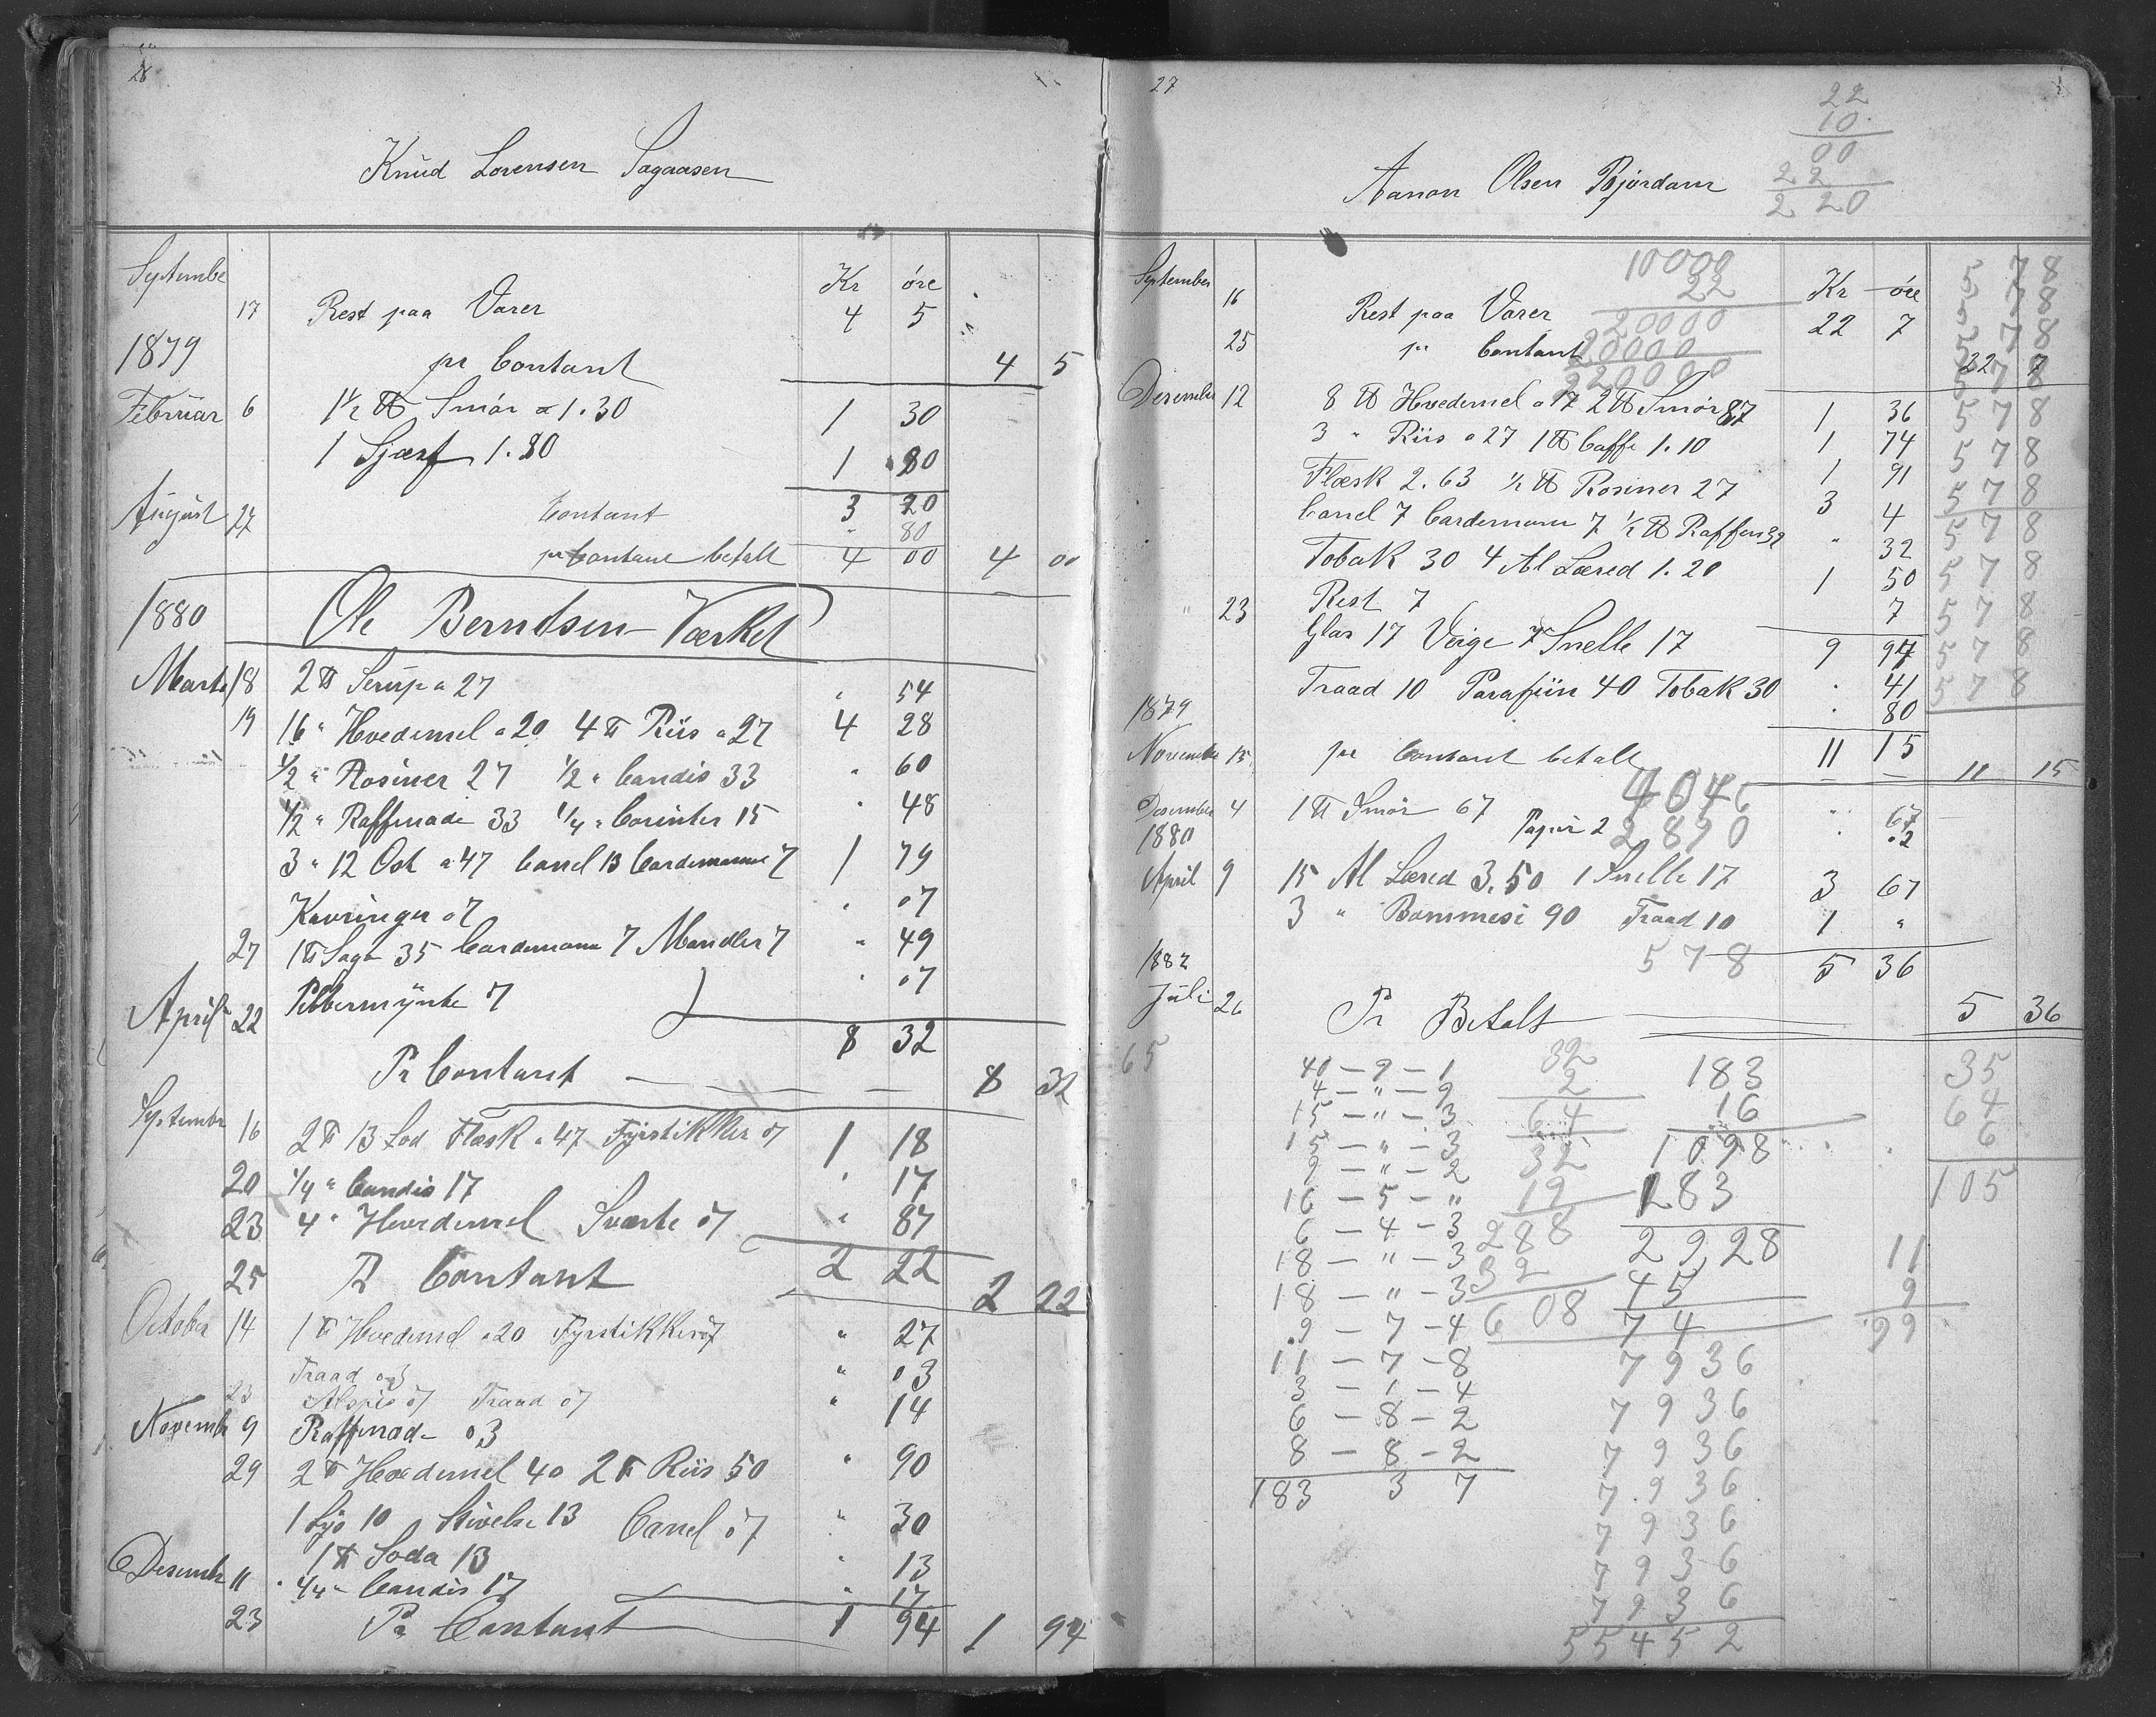 26
Knud Lorensen Sagaasen
Septembe
Kr øre
17 Rest paa Varer 4 5
1879 pr Contant 4 5
Februar 6 1½ ℔ Smör a 1.30 1 30
1 Sjærf 1.80 1 80
3 20
August 27 Contant " 80
pr Contant betalt 4 00 4 00
1880 Ole Berndsen Værket
Marts 18 2 ℔ Serup a 27 " 54
19 16 " Hvedemel a 20 4 ℔ Riis a 27 4 28
1/2 " Rosiner 27 1/2 " Candis 33 " 60
1/2 " Raffenade 33 1/4 " Corinter 15 " 48
3 " 12 Ost a 47 Canel 13 Cardemomme 7 1 79
Kavringer 07 " 07
27 1 ℔ Sago 35 Cardemome 7 Mandler 7 " 49
Pebbermynte 7 " 07
April 22 8 32
Pr Contant 8 32
Septembr 16 2 ℔ 13 Lod Flæsk a 47 Fyrstikker 07 1 18
20 1/4 " Candis 17 " 17
23 4 " Hvedemel Sværte 07 " 87
2 22
25 Pr Contant 2 22
October 14 1 ℔ Hvedemel a 20 Fyrstikker 07 " 27
Traad 03 " 03
23 Alspis 07 Traad 07 " 14
Novembr 9 Raffenad 03
29 2 ℔ Hvedemel 40 2 ℔ Riis 50 " 90
1 Lys 10 Stivelse 13 Canel 07 " 30
1 ℔ Soda 13 " 13
Desembr 11 1/4 " Candis 17 " 17
23 Pr Contant 1 94 1 94
27
Aanon Olsen Bjordam
22
10
00
22
2 20
10000
22
20000
20000
220000
September Kr øre
16 Rest paa Varer 22 7
25 pr Contant 22 7
Desember 12 8 ℔ Hvedemel a 17 2 ℔ Smör 87 1 36
3 " Riis a 27 1 ℔ Caffe 1.10 1 74
Flæsk 2.63 ½ ℔ Rosiner 27 1 91
Canel 7 Cardemom 7 ½ ℔ Raffen 32 3 4
Tobak 30 4 Al Læred 1.20 " 32
Rest 7 1 50
7
" 23 Glas 17 Veige 7 Snelle 17 9 94
Traad 10 Parafiin 40 Tobak 30 " 41
1879 " 80
November 15 pr Contant betalt 11 15 11 15
4046
2890
Desember 4 1 ℔ Smör 67 " 67
1880 Papir 2 " 02
April 9 15 Al Læred 3.50 1 Snelle 17 3 67
3 " Bommesi 90 Traad 10 1 "
578
1882 5 36
Juli 26 Pr Betalt 5 36
5 78
5 78
5 78
5 78
5 78
5 78
5 78
5 78
5 78
5 78
5 78
5 78
65
40 – 9 – 1
4 – " – 9
15 – " – 3
15 – " – 3
9 – " – 2
16 – 5 – "
6 – 4 – 3
18 – " – 3
18 – " – 3
9 – 7 – 4
11 – 7 – 8
3 – 1 – 4
6 – 8 – 2
8 – 8 – 2
183 3 7
32
2
64
32
19
288
32
608
183
16
1098
183
2928
45
74
7936
7936
7936
7936
7936
7936
7936
55452
35
64
6
105
11
9
99